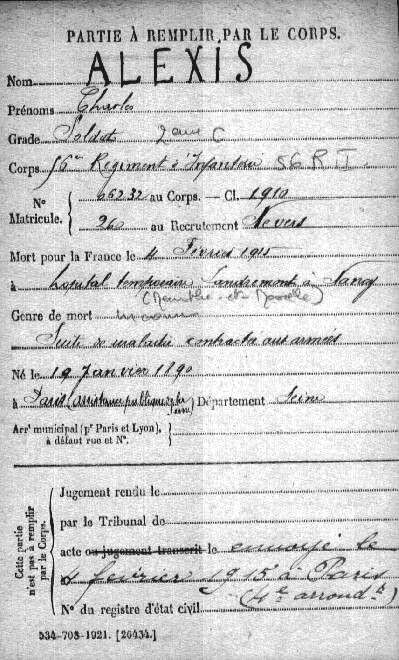 PARTIE À REMPLIR PAR LE CORPS.
Nom ALEXIS
Prénoms Charles
Grade Soldat 2eme C
Corps 56me Régiment d'Infanterie 56 R I
N° Matricule. { au Corps. — Cl. 1910
au Recrutement Nevers
Mort pour la France le 4 Février 1915
à hopital temporaire Landremont à Nancy
(Meurthe-et-Moselle)
Genre de mort
Suite de maladie contractée aux armées
Né le 19 Janvier 1890
à Paris (assistance publique) Département Seine
Arrt municipal (pr Paris et Lyon), à défaut rue et N°.
Cette partie n'est pas à remplir par le Corps.
Jugement rendu le
par le Tribunal de
acte ou jugement transcrit le envoyé le
4 février 1915 à Paris
(4e arrondt)
N° du registre d'état civil
534-708-1921. [26434.]